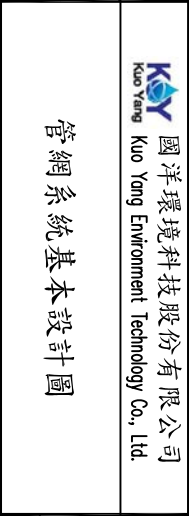 KOY
Kuo Yang
國洋環境科技股份有限公司
Kuo Yang Environment Technology Co., Ltd.
管網系統基本設計圖